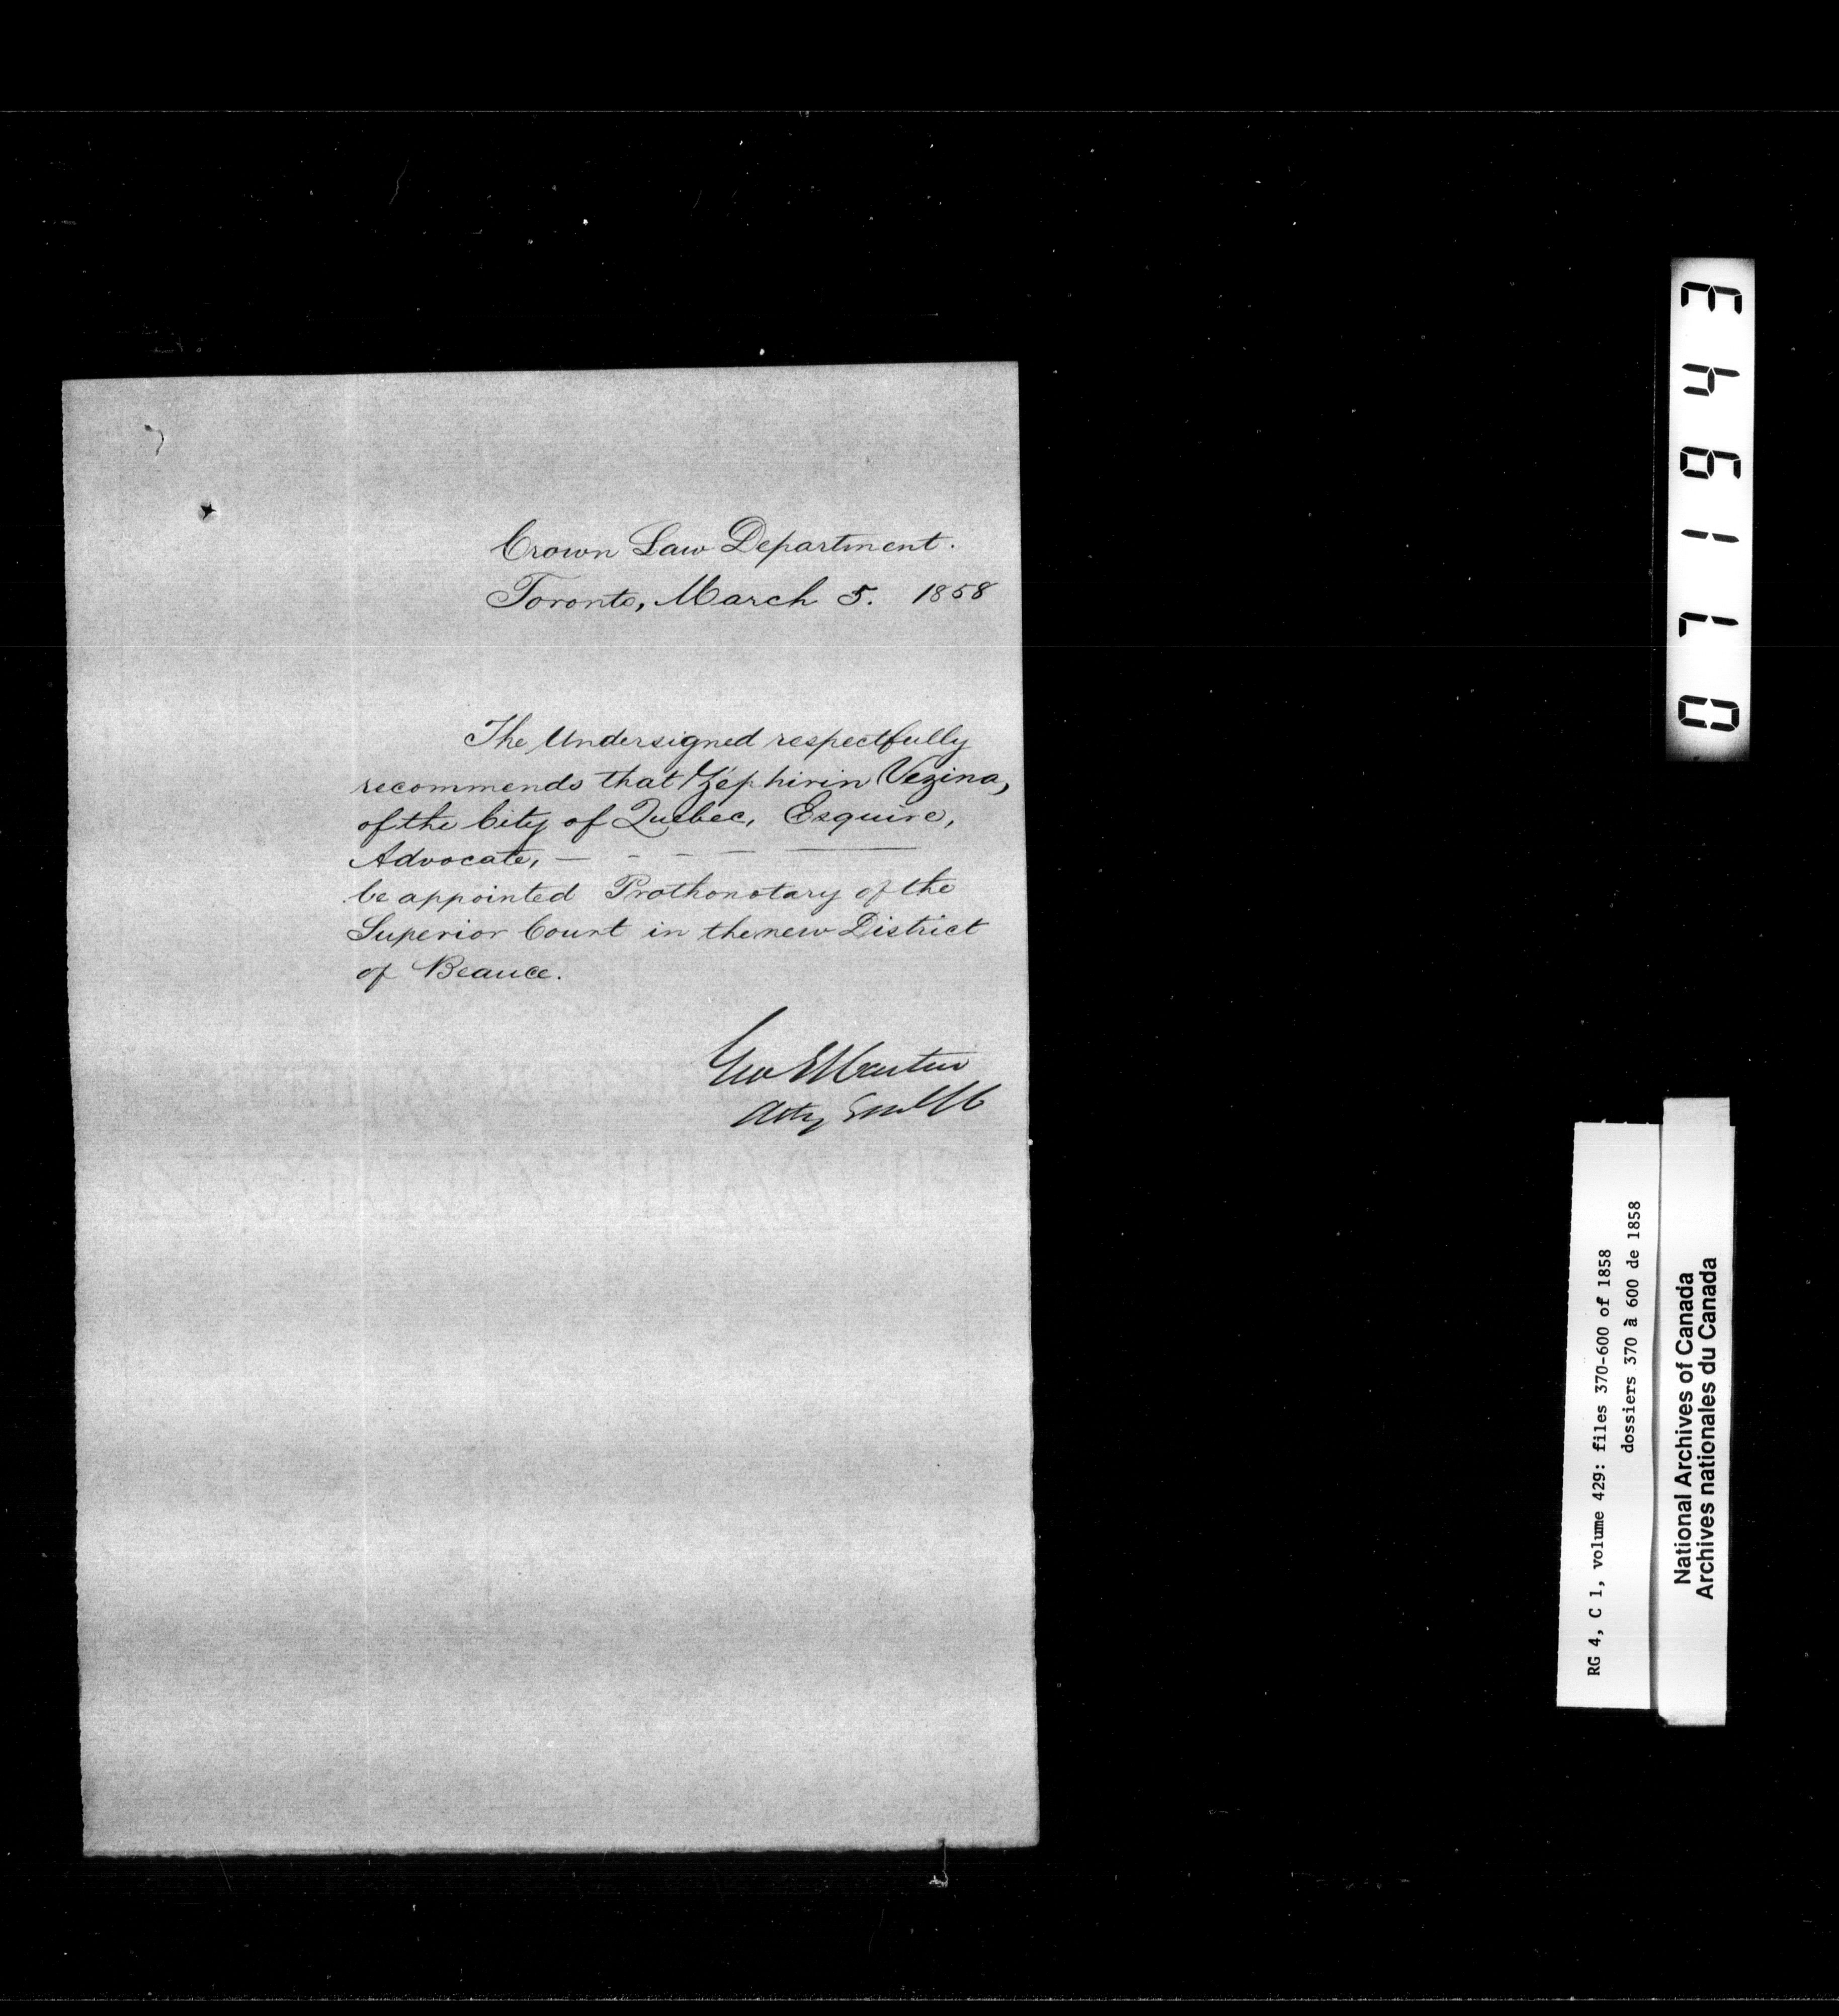 Crown Law Department.
Toronto, March 5. 1858
The Undersigned respectfully
recommends that Zéphirin Vezina,
of the City of Quebec, Esquire,
Advocate, — - — — ———
be appointed Prothonotary of the
Superior Court in the new District
of Beauce.
Geo E Cartier
Atty Genl LC
071643
RG 4, C 1, volume 429: files 370-600 of 1858
dossiers 370 à 600 de 1858
National Archives of Canada
Archives nationales du Canada